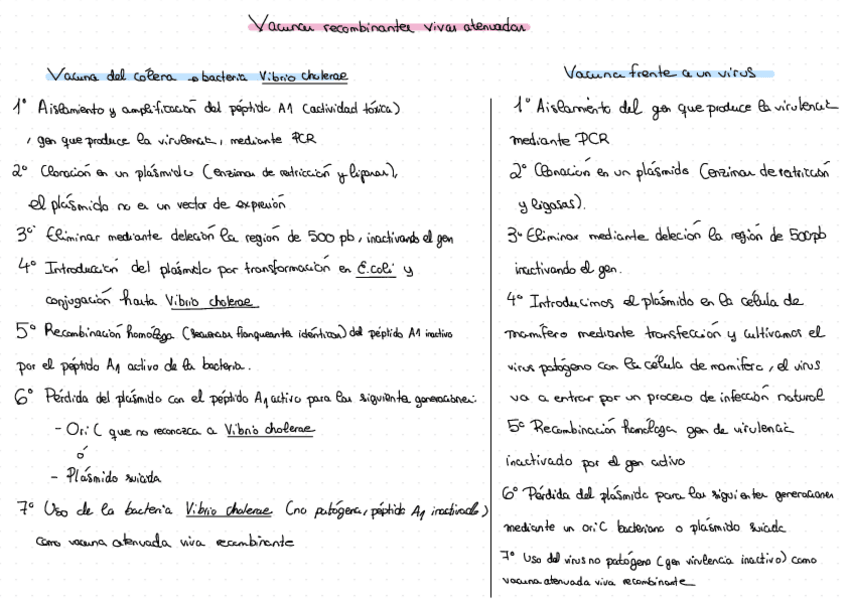 Vacunas recombinantes vivas atenuadas
Vacuna del cólera → bacteria Vibrio cholerae
1º Aislamiento y amplificación del péptido A1 (actividad tóxica)
, gen que produce la virulencia, mediante PCR
2º Clonación en un plásmido (enzimas de restricción y ligasas),
el plásmido no es un vector de expresión
3º Eliminar mediante deleción la región de 500 pb, inactivando el gen
4º Introducción del plásmido por transformación en E.coli y
conjugación hasta Vibrio cholerae
5º Recombinación homóloga (secuencias flanqueantes idénticas) del péptido A1 inactivo
por el péptido A1 activo de la bacteria.
6º Pérdida del plásmido con el péptido A1 activo para las siguientes generaciones:
- Ori C que no reconozca a Vibrio cholerae
ó
- Plásmido suicida
7º Uso de la bacteria Vibrio cholerae (no patógena, péptido A1 inactivado)
como vacuna atenuada viva recombinante
Vacuna frente a un virus
1º Aislamiento del gen que produce la virulencia
mediante PCR
2º Clonación en un plásmido (enzimas de restricción
y ligasas).
3º Eliminar mediante deleción la región de 500pb
inactivando el gen.
4º Introducimos el plásmido en la célula de
mamífero mediante transfección y cultivamos el
virus patógeno con la célula de mamífero, el virus
va a entrar por un proceso de infección natural
5º Recombinación homóloga gen de virulencia
inactivado por el gen activo
6º Pérdida del plásmido para las siguientes generaciones
mediante un ori C bacteriano o plásmido suicida
7º Uso del virus no patógeno (gen virulencia inactivo) como
vacuna atenuada viva recombinante